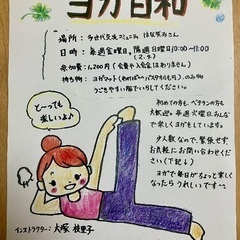 ヨガ日和
場所:多世代交流コミュニティ
日時:毎週金曜日、隔週日曜10:00~11:00
(2、4)
参加費:1,200円(会費や入会金はありません)
持ち物:ヨガマット(なければバスタオルでも可)、のみ物
うごきやすい服でいらしてください。
ど〜っても
楽しいよ♪
初めての方も、ベテランの方も
大歓迎。
楽しくヨガをしています。
少人数なので、緊張せず
お気軽にお問い合わせ
ください(下記↓)
ヨガで毎日がちょっと楽しく
なったらうれしいです
インストラクター:大塚 枝里子